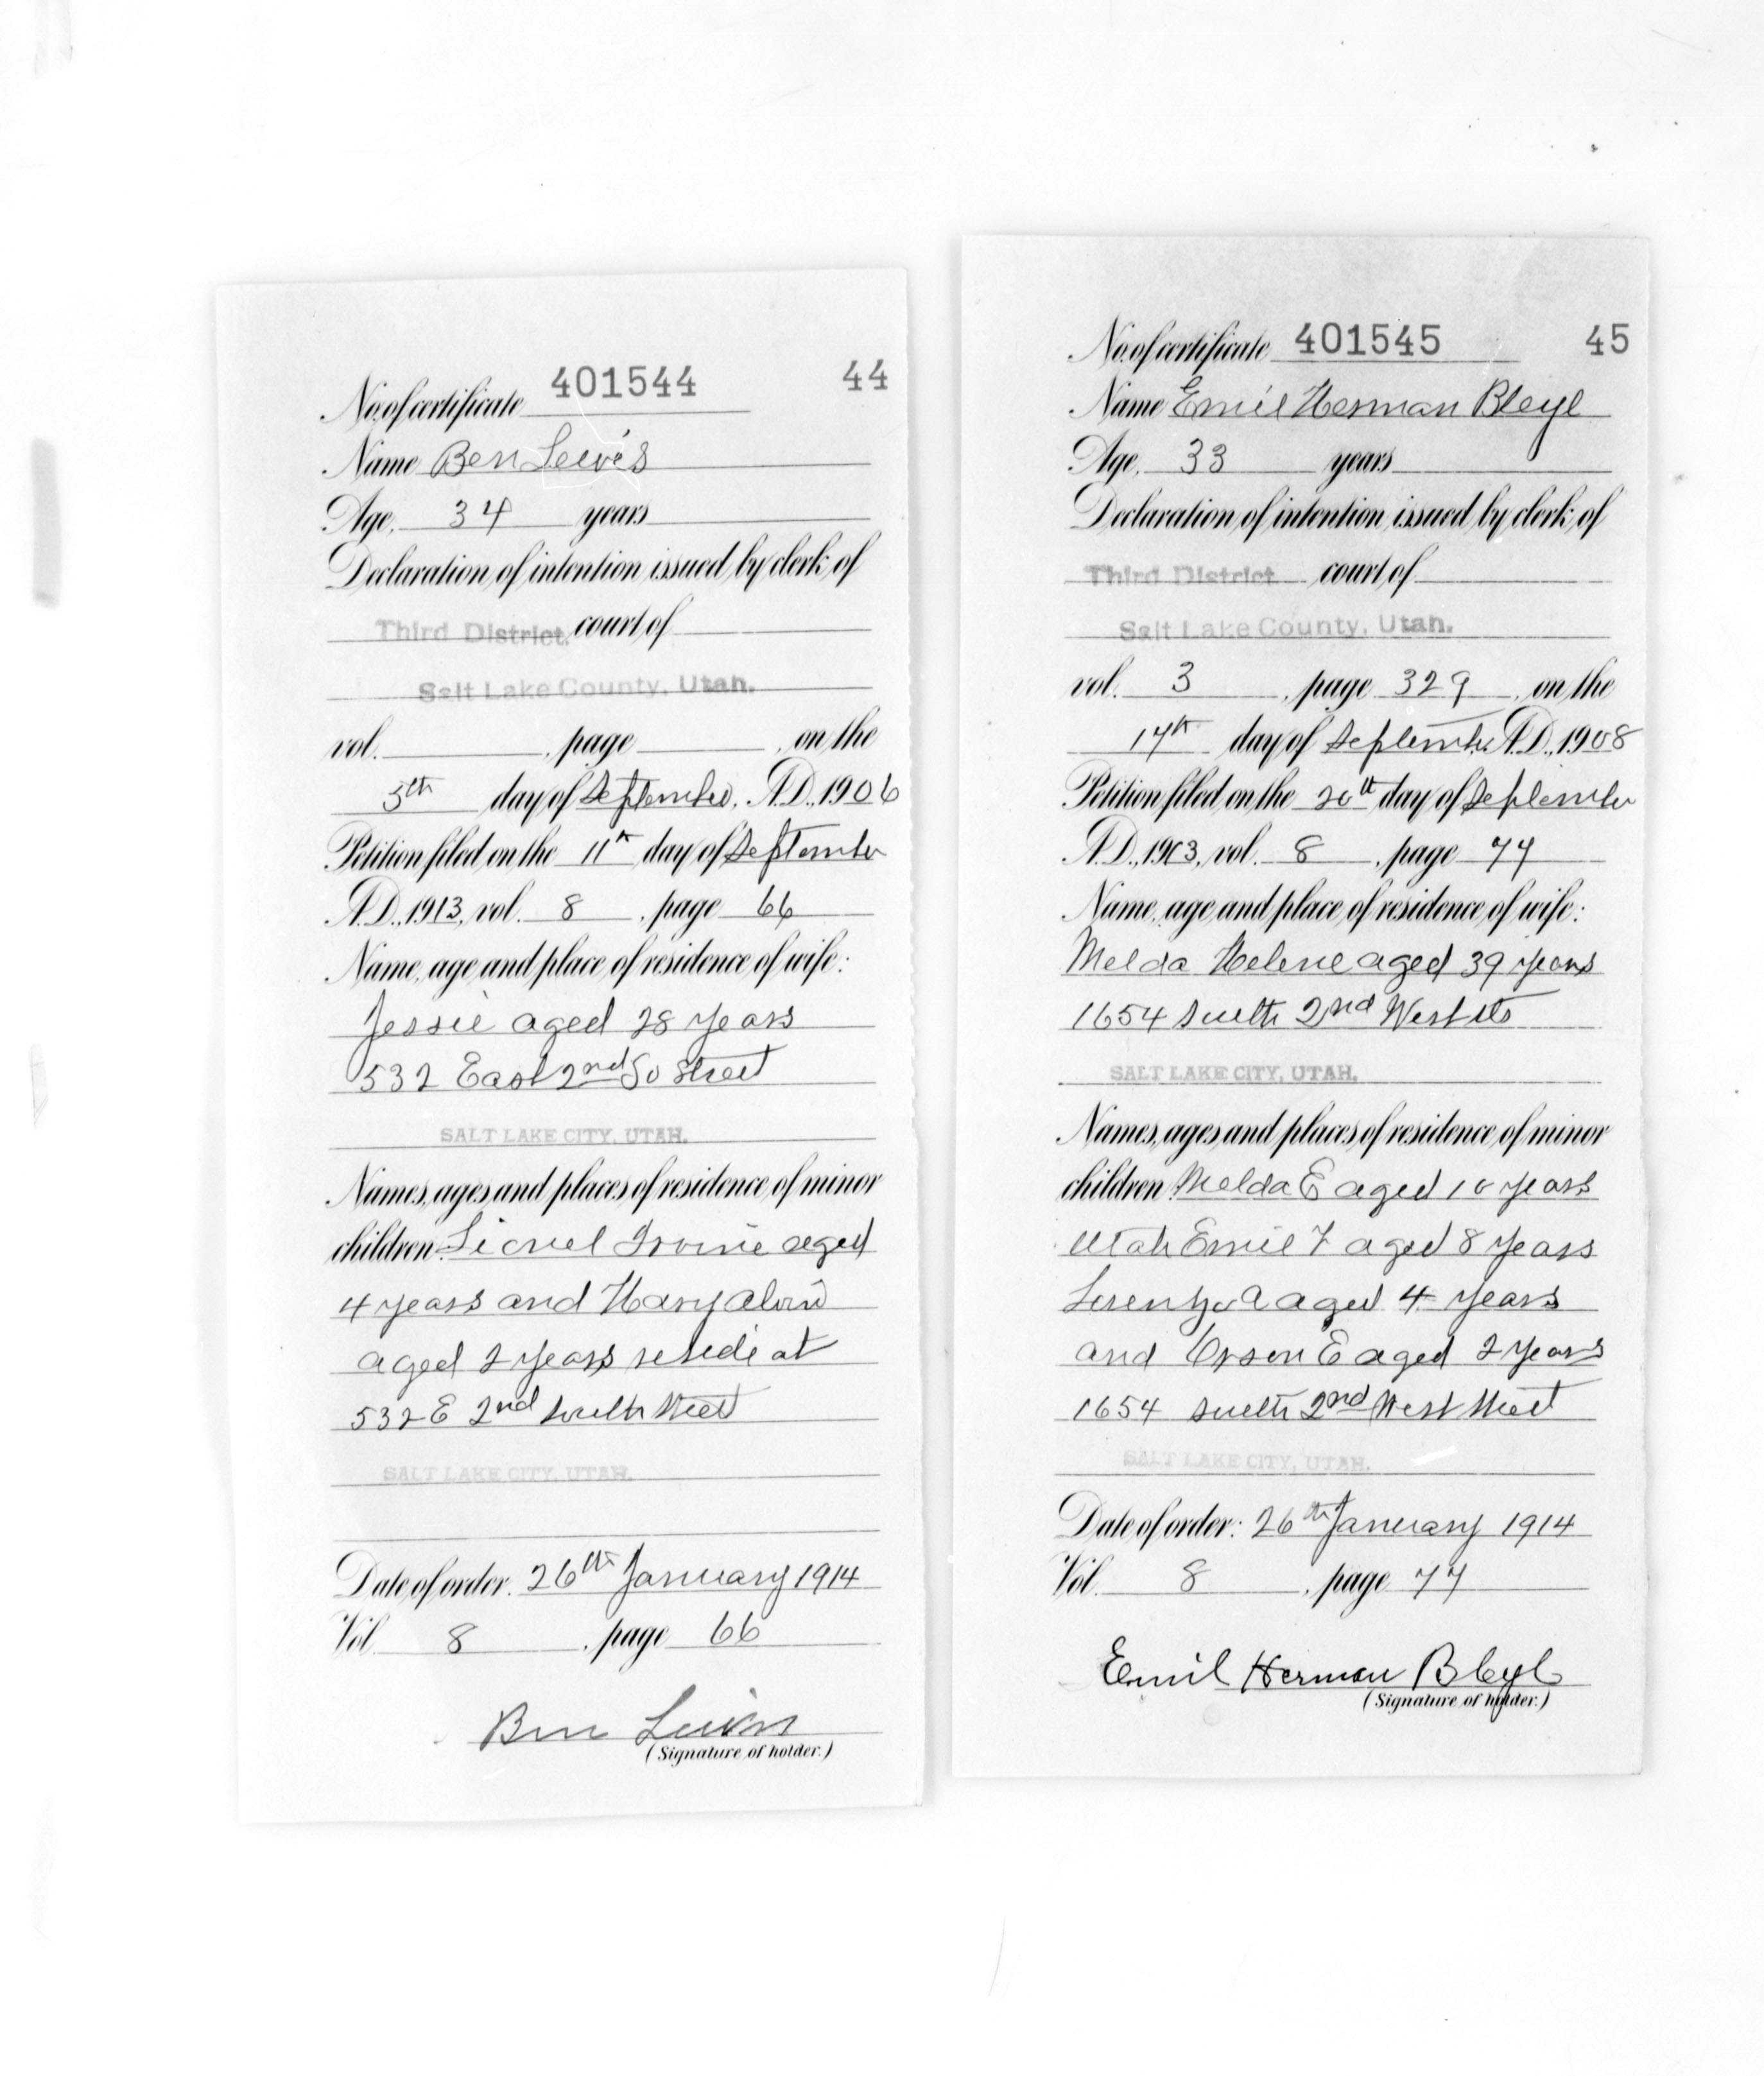 No. of certificate 401544 44
Name Ben Lewis
Age, 34 years
Declaration of intention issued by clerk of
Third District. court of
Salt Lake County, Utah.
vol. , page , on the
5th day of September, A.D., 1906
Petition filed on the 11th day of September
A.D., 1913, vol. 8, page 66
Name, age and place of residence of wife:
Jessie aged 28 years
532 East 2nd So Street
SALT LAKE CITY, UTAH.
Names, ages and places of residence of minor
children: Lionel Irvine aged
4 years and Harry Alvin
aged 2 years reside at
532 E 2nd South Street
SALT LAKE CITY, UTAH.
Date of order. 26th January 1914
Vol. 8, page 66
Ben Lewis
(Signature of holder.)
No. of certificate 401545 45
Name Emil Herman Bleyl
Age, 33 years
Declaration of intention issued by clerk of
Third District court of
Salt Lake County, Utah.
vol. 3, page 329, on the
17th day of September A.D., 1908
Petition filed on the 20th day of September
A.D., 1913, vol. 8, page 77
Name, age and place of residence of wife:
Melda Helene aged 39 years
1654 South 2nd West St
SALT LAKE CITY, UTAH.
Names, ages and places of residence of minor
children Melda E aged 10 years
Utah Emil F aged 8 years
Lorenzo A aged 4 years
and Orson E aged 2 years
1654 South 2nd West Street
SALT LAKE CITY, UTAH.
Date of order: 26th January 1914
Vol. 8, page 77
Emil Herman Bleyl
(Signature of holder.)